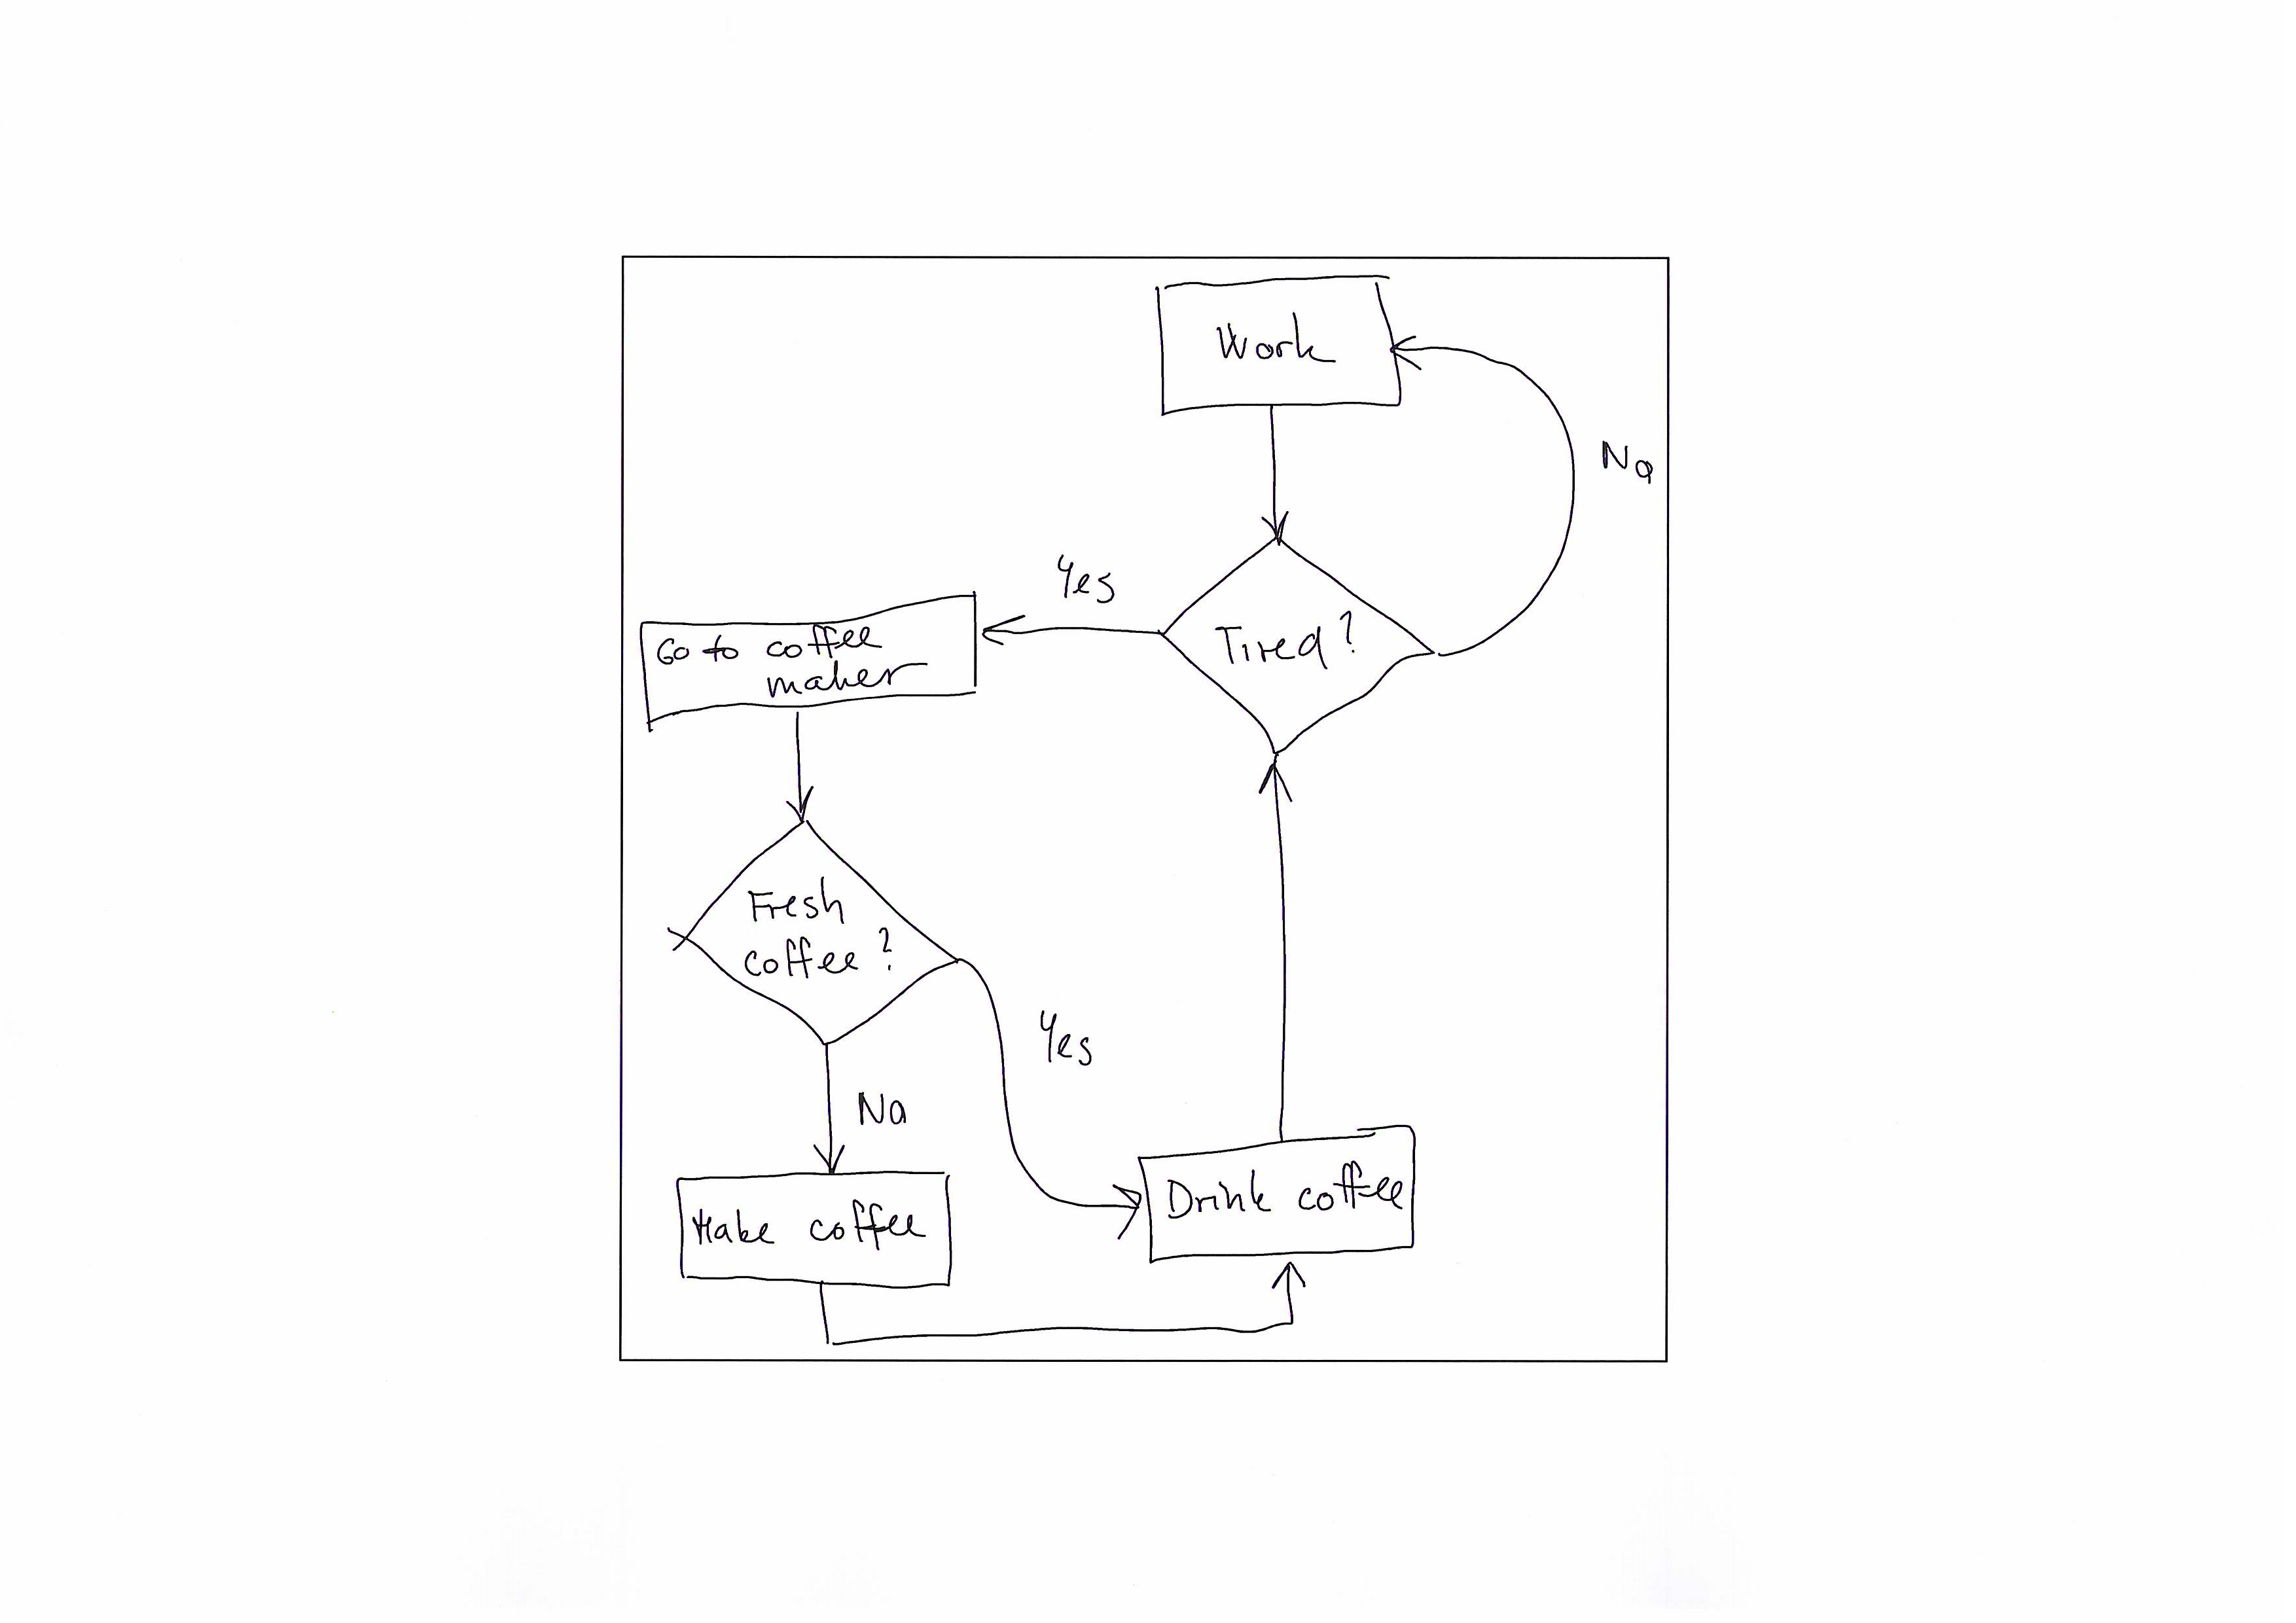 Work
No
Yes
Tired?
Go to coffee
maker
Fresh
coffee?
Yes
No
Drink coffee
Make coffee